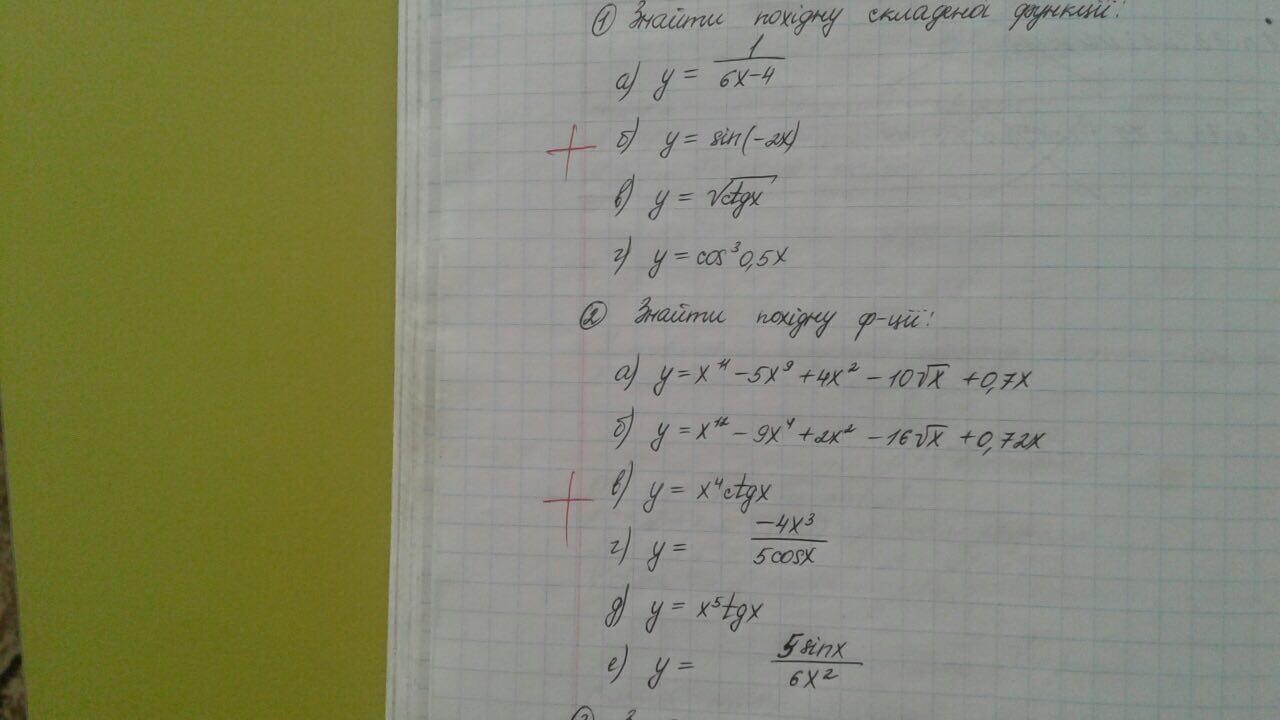 ① Знайти похідну складеної функції:
а) y = 1/(6x-4)
б) y = sin(-2x)
в) y = √ctgx
г) y = cos³0,5x
② Знайти похідну ф-ції:
а) y = x¹¹ - 5x⁹ + 4x² - 10√x + 0,7x
б) y = x¹² - 9x⁴ + 2x² - 16√x + 0,72x
в) y = x⁴ctgx
г) y = -4x³/5cosx
д) y = x⁵tgx
е) y = 5sinx/6x²